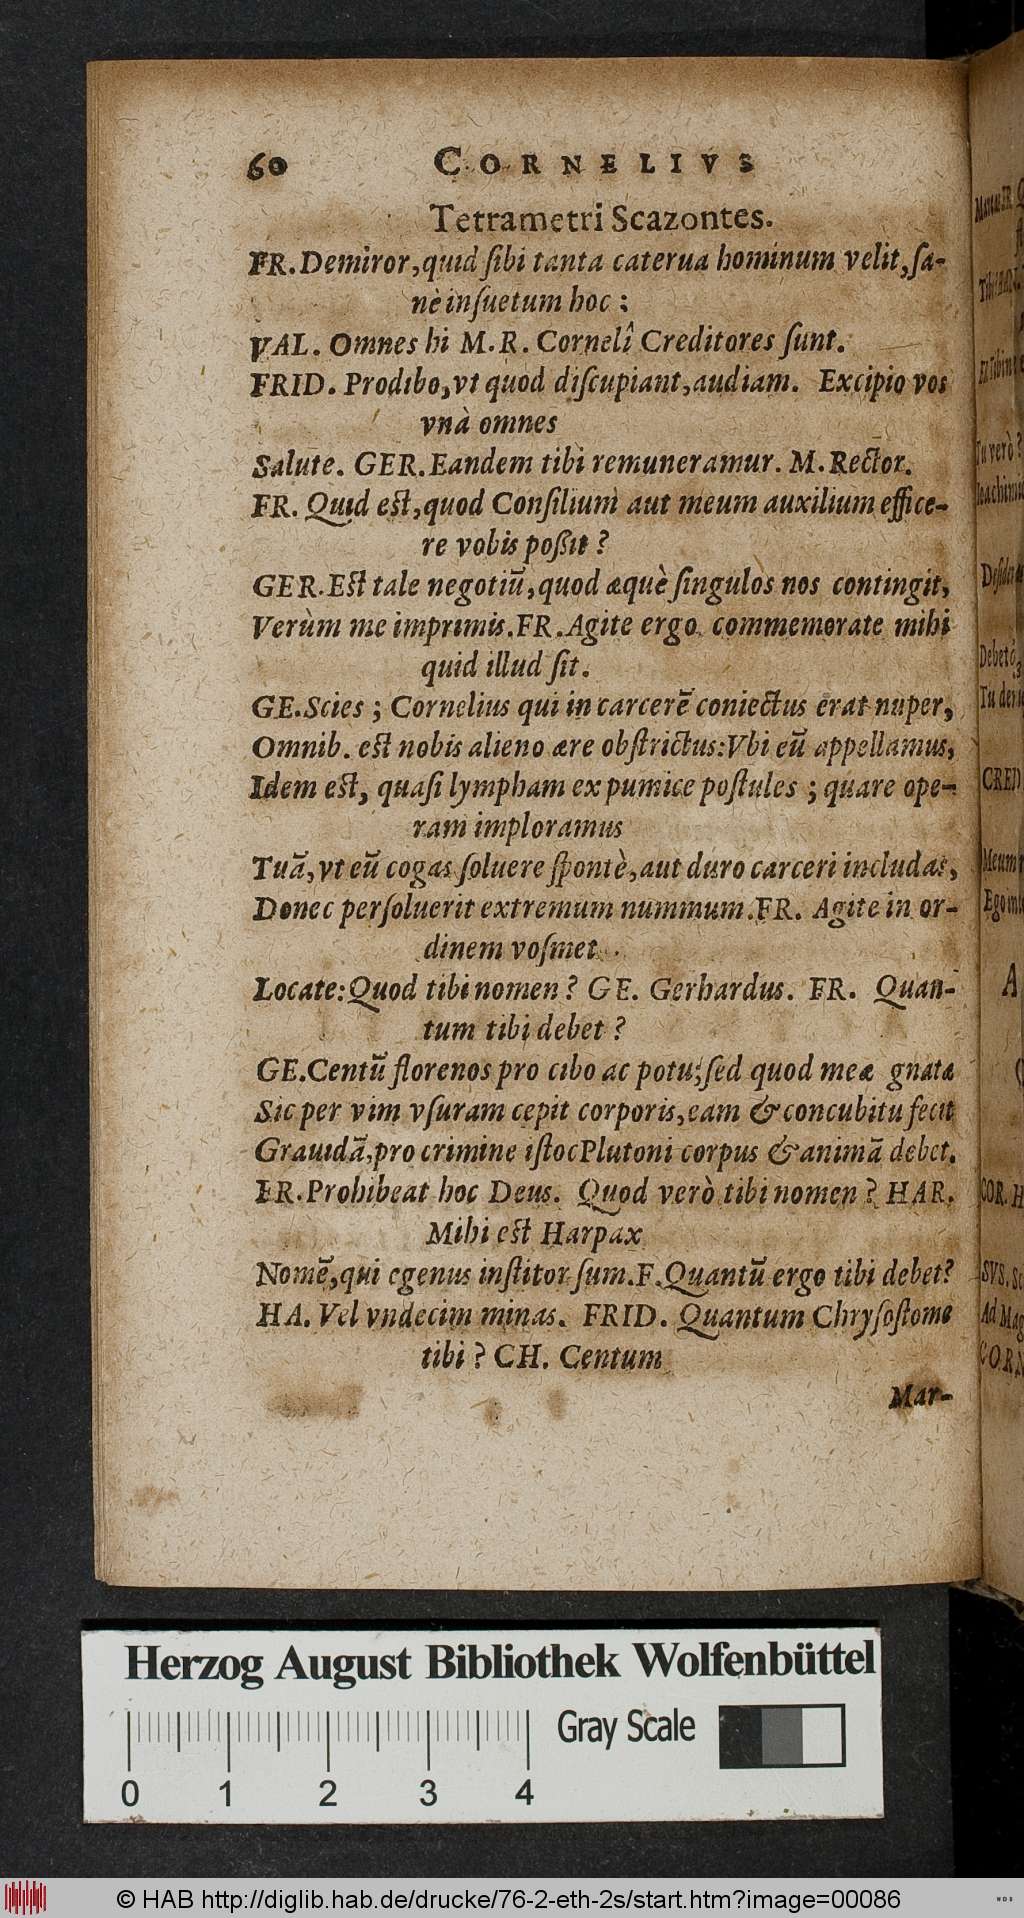 60 CORNELIVS
Tetrametri Scazontes.
FR. Demiror, quid ſibi tanta caterua hominum velit, ſa-
nè inſuetum hoc :
VAL. Omnes hi M. R. Cornelî Creditores ſunt.
FRID. Prodibo, vt quod diſcupiant, audiam. Excipio vos
vnà omnes
Salute. GER. Eandem tibi remuneramur. M. Rector.
FR. Quid eſt, quod Conſilium aut meum auxilium effice-
re vobis poßit ?
GER. Eſt tale negotiũ, quod æquè ſingulos nos contingit,
Verùm me imprimis. FR. Agite ergo commemorate mihi
quid illud ſit.
GE. Scies ; Cornelius qui in carcerẽ coniectus erat nuper,
Omnib. eſt nobis alieno ære obſtrictus: Vbi eũ appellamus,
Idem eſt, quaſi lympham ex pumice poſtules ; quare ope-
ram imploramus
Tuã, vt eũ cogas ſoluere ſpontè, aut duro carceri includas,
Donec perſoluerit extremum nummum. FR. Agite in or-
dinem voſmet
Locate: Quod tibi nomen ? GE. Gerhardus. FR. Quan-
tum tibi debet ?
GE. Centũ florenos pro cibo ac potu; ſed quod meæ gnatæ
Sic per vim vſuram cepit corporis, eam & concubitu fecit
Grauidã, pro crimine iſtoc Plutoni corpus & animã debet.
FR. Prohibeat hoc Deus. Quod verò tibi nomen ? HAR.
Mihi eſt Harpax
Nomẽ, qui egenus inſtitor ſum. F. Quantũ ergo tibi debet?
HA. Vel vndecim minas. FRID. Quantum Chryſoſtome
tibi ? CH. Centum
Mar-
Tu verò ?
Debet
CRED
Meum
A
COR. H
SVS. Sc
Ad Mag
CORN
Herzog August Bibliothek Wolfenbüttel
Gray Scale
0 1 2 3 4
© HAB http://diglib.hab.de/drucke/76-2-eth-2s/start.htm?image=00086